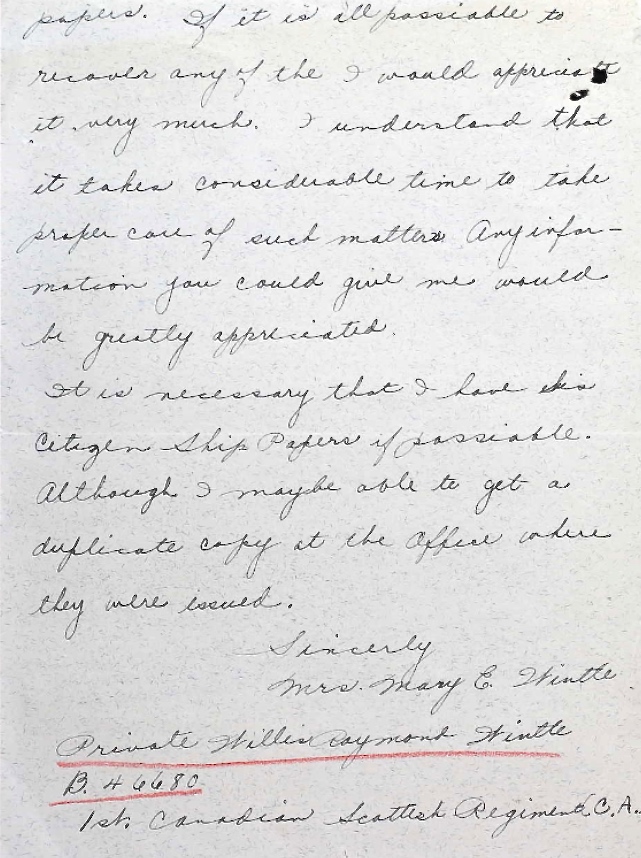 papers. If it is all possiable to
recover any of the I would appreciatt
it very much. I understand that
it takes considerable time to take
proper care of such matters. Any infor-
mation you could give me would
be greatly appreciated.
It is necessary that I have his
Citizen Ship Papers if possiable.
Although I maybe able to get a
duplicate copy at the Office where
they were issued.
Sincerly
Mrs. Mary E. Wintle
Private Willis Raymond Wintle
B. 46680
1st. Canadian Scottish Regiment, C.A.